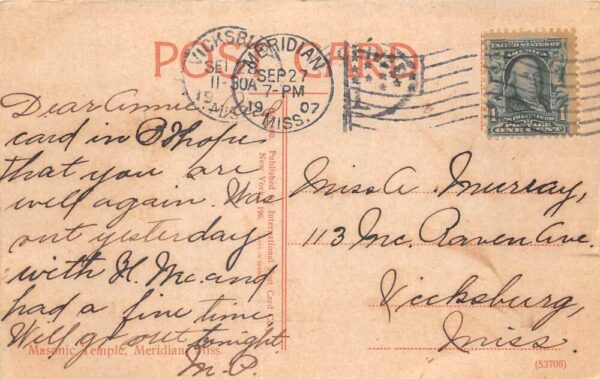 POST CARD
VICKSBURG
11-30A
MERIDIAN
SEP 27
7-PM
1907
MISS.
UNITED STATES OF
POSTAGE
ONE CENT
Dear Annie
card in
that you are
well again. Was
out yesterday
with H. Mc. and
had a fine time
Will go out tonight.
M.P.
Published by International Post Card Co.
New York
Miss A. Murray,
113 Mc. Raven Ave.
Vicksburg,
Miss.
Masonic Temple, Meridian, Miss.
(53708)